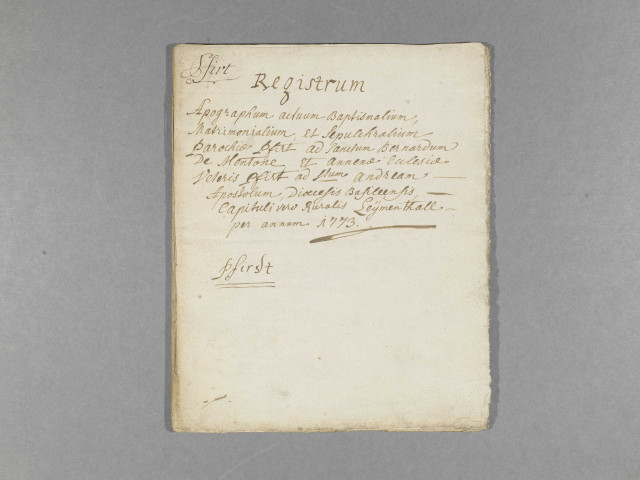 Pfirt
Registrum
Apographum actuum Baptismalium,
Matrimonialium, et Sepulchralium
Parochiæ Pfirt ad Sanctum Bernardum
De Montone et annexæ Ecclesiæ
Veteris Pfirt ad Stum Andream
Apostolum, Dioecesis Basileensis,
Capituli vero Ruralis Leÿmenthall
per annum 1773.
Pfirdt